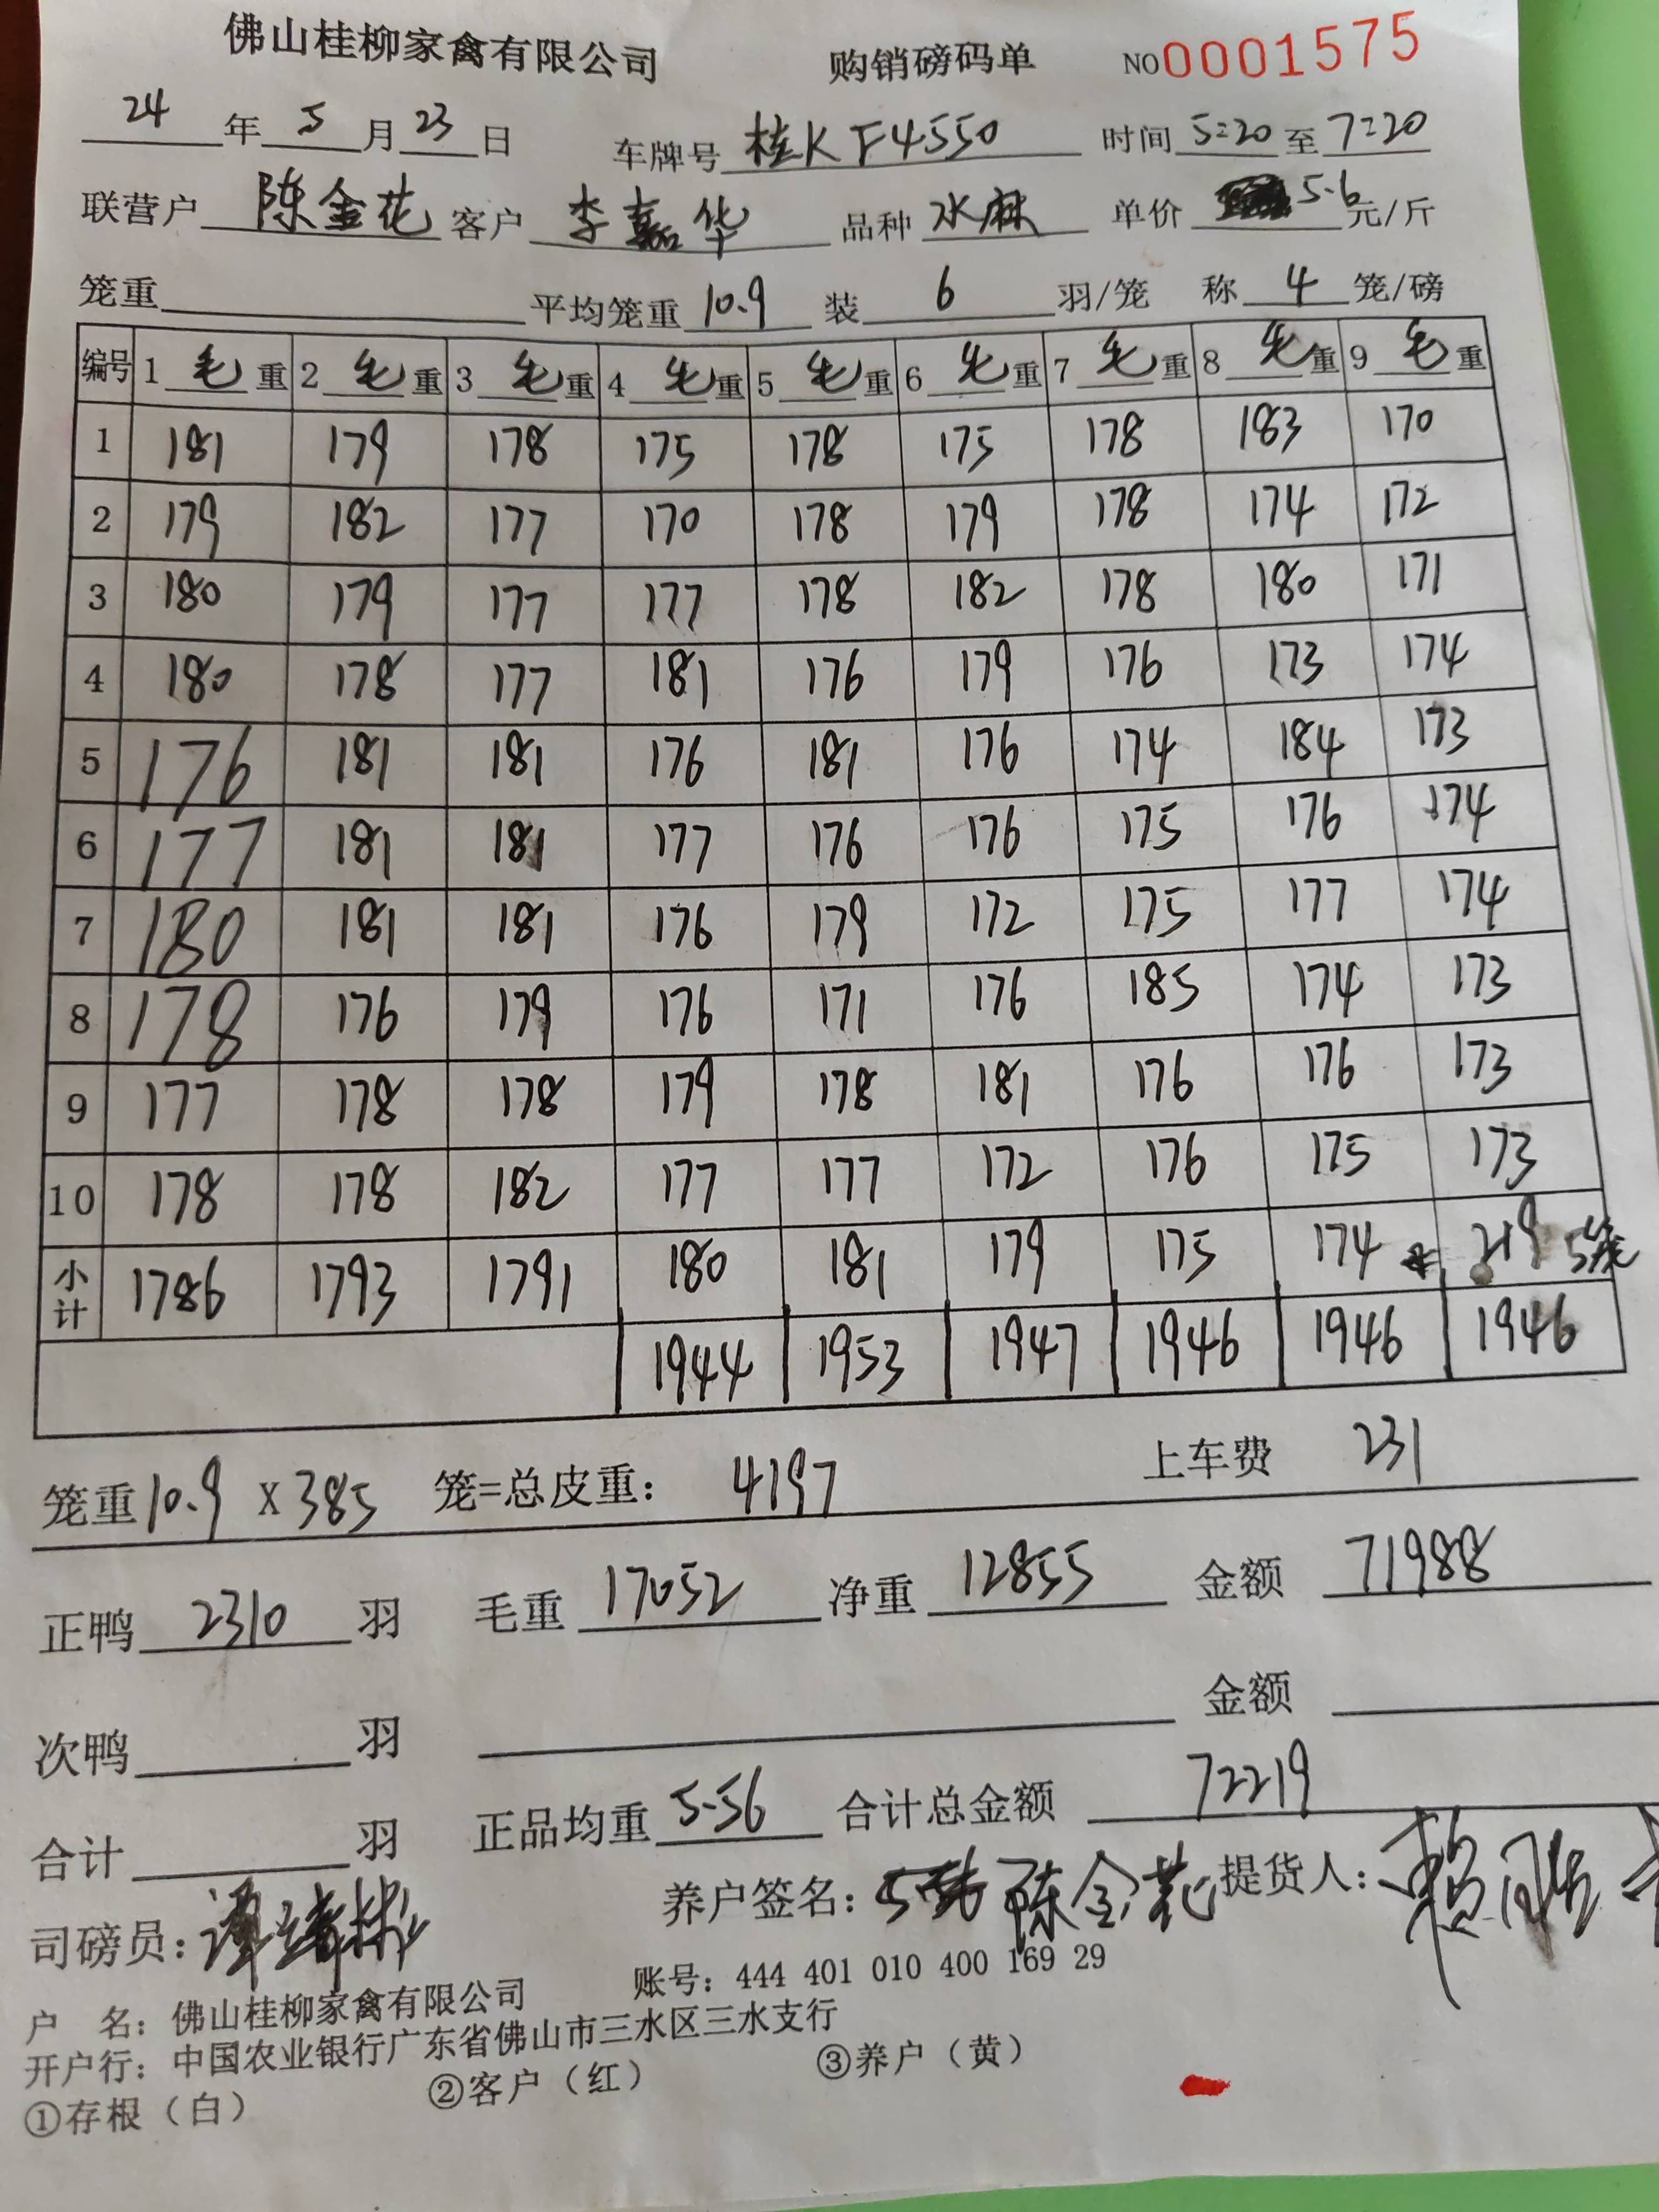 佛山桂柳家禽有限公司 购销磅码单 NO0001575
24年5月23日 车牌号 桂KF4550 时间 5:20 至 7:20
联营户 陈金花 客户 李嘉华 品种 水麻 单价 5.6 元/斤
笼重 平均笼重 10.9 装 6 羽/笼 称 4 笼/磅
编号 1 毛重 2 毛重 3 毛重 4 毛重 5 毛重 6 毛重 7 毛重 8 毛重 9 毛重
1 181 179 178 175 178 175 178 183 170
2 179 182 177 170 178 179 178 174 172
3 180 179 177 177 178 182 178 180 171
4 180 178 177 181 176 179 176 173 174
5 176 181 181 176 181 176 174 184 173
6 177 181 181 177 176 176 175 176 174
7 180 181 181 176 179 172 175 177 174
8 178 176 179 176 171 176 185 174 173
9 177 178 178 179 178 181 176 176 173
10 178 178 182 177 177 172 176 175 173
小计 1786 1793 1791 180 181 179 175 174 219 5笼
1944 1953 1947 1946 1946 1946
笼重 10.9 X 385 笼=总皮重: 4197 上车费 231
正鸭 2310 羽 毛重 17052 净重 12855 金额 71988
次鸭 羽 金额
合计 羽 正品均重 5.56 合计总金额 72219
司磅员: 养户签名: 陈金花 提货人:
户 名: 佛山桂柳家禽有限公司 账号: 444 401 010 400 169 29
开户行: 中国农业银行广东省佛山市三水区三水支行
①存根(白) ②客户(红) ③养户(黄)